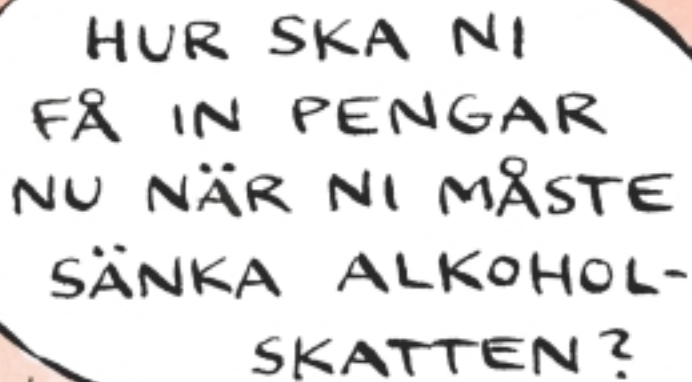 HUR SKA NI
FÅ IN PENGAR
NU NÄR NI MÅSTE
SÄNKA ALKOHOL-
SKATTEN?